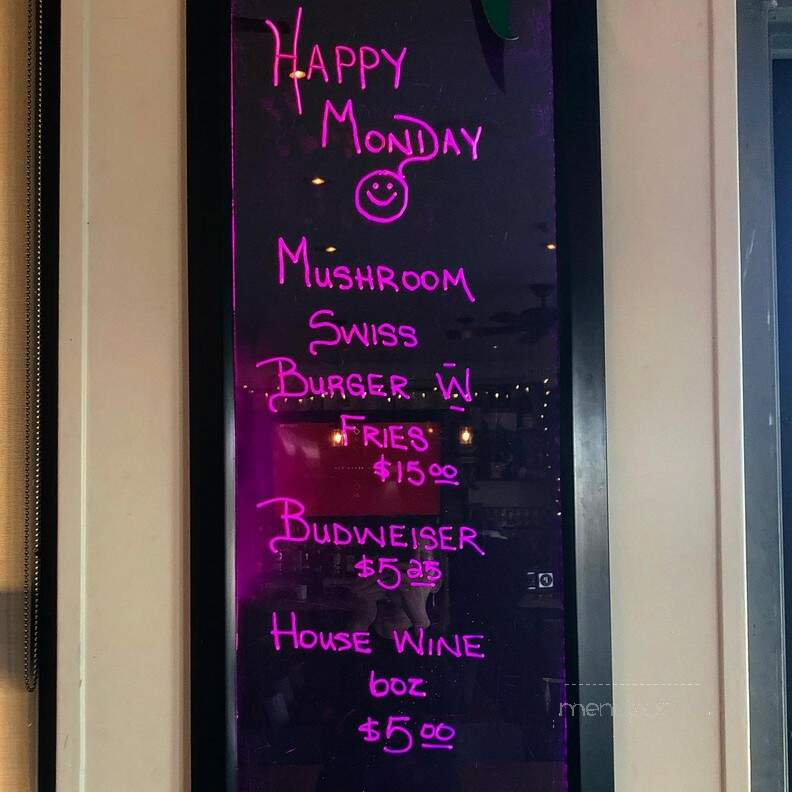 HAPPY
MONDAY
MUSHROOM
SWISS
BURGER W
FRIES
$15.00
BUDWEISER
$5.25
HOUSE WINE
6oz
$5.00